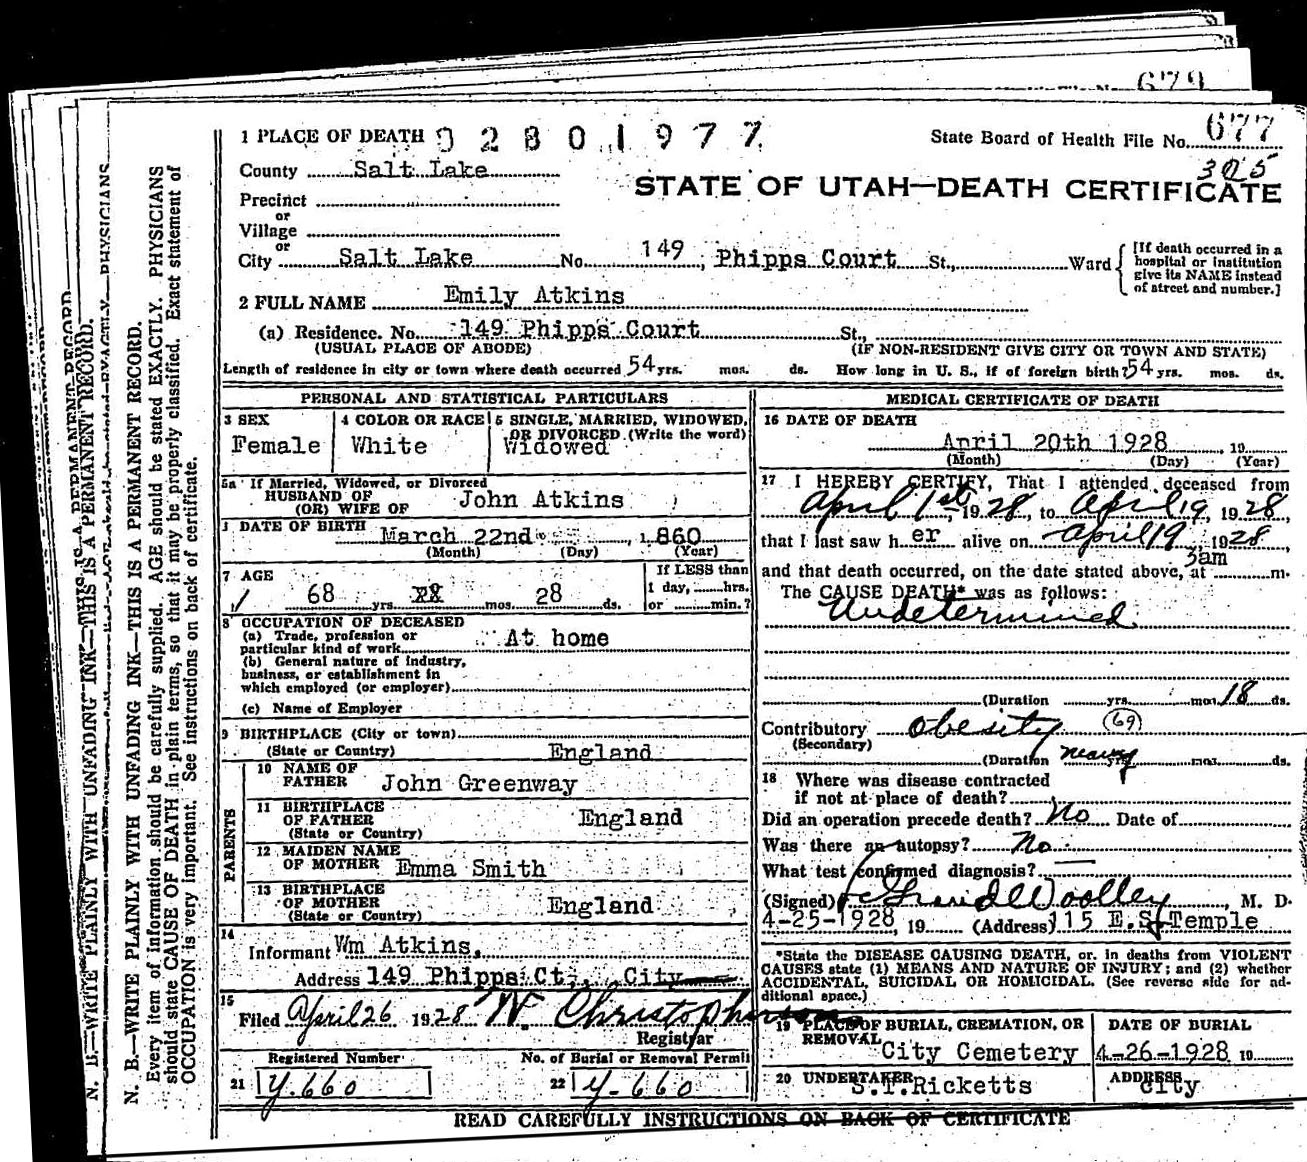 679
N. B.—WRITE PLAINLY WITH UNFADING INK—THIS IS A PERMANENT RECORD.
N. B.—WRITE PLAINLY WITH UNFADING INK—THIS IS A PERMANENT RECORD.
Every item of information should be carefully supplied. AGE should be stated EXACTLY. PHYSICIANS
should state CAUSE OF DEATH in plain terms, so that it may be properly classified. Exact statement of
OCCUPATION is very important. See instructions on back of certificate.
1 PLACE OF DEATH 02801977
State Board of Health File No. 677
305
County Salt Lake
STATE OF UTAH—DEATH CERTIFICATE
Precinct
or
Village
or
City Salt Lake No. 149, Phipps Court St., Ward
[If death occurred in a
hospital or institution
give its NAME instead
of street and number.]
2 FULL NAME Emily Atkins
(a) Residence. No. 149 Phipps Court St.,
(USUAL PLACE OF ABODE) (IF NON-RESIDENT GIVE CITY OR TOWN AND STATE)
Length of residence in city or town where death occurred 54 yrs. mos. ds. How long in U. S., if of foreign birth? 54 yrs. mos. ds.
PERSONAL AND STATISTICAL PARTICULARS
3 SEX
Female
4 COLOR OR RACE
White
5 SINGLE, MARRIED, WIDOWED,
OR DIVORCED (Write the word)
Widowed
5a If Married, Widowed, or Divorced
HUSBAND OF
(OR) WIFE OF John Atkins
DATE OF BIRTH
March 22nd, 1860
(Month) (Day) (Year)
7 AGE
68 yrs. mos. 28 ds.
If LESS than
1 day, hrs.
or min.?
8 OCCUPATION OF DECEASED
(a) Trade, profession or
particular kind of work At home
(b) General nature of industry,
business, or establishment in
which employed (or employer)
(c) Name of Employer
9 BIRTHPLACE (City or town)
(State or Country) England
PARENTS
10 NAME OF
FATHER John Greenway
11 BIRTHPLACE
OF FATHER England
(State or Country)
12 MAIDEN NAME
OF MOTHER Emma Smith
13 BIRTHPLACE
OF MOTHER England
(State or Country)
14
Informant Wm Atkins,
Address 149 Phipps Ct., City
15
Filed April 26 1928 W. Christopherson
Registrar
Registered Number
21 Y.660
No. of Burial or Removal Permit
22 Y-660
MEDICAL CERTIFICATE OF DEATH
16 DATE OF DEATH
April 20th 1928, 19
(Month) (Day) (Year)
17 I HEREBY CERTIFY, That I attended deceased from
April 1st, 1928, to April 19, 1928,
that I last saw her alive on April 19 1928,
and that death occurred, on the date stated above, at 3am m.
The CAUSE DEATH* was as follows:
Undetermined
(Duration yrs. mos. 18 ds.
Contributory Obesity (69)
(Secondary)
(Duration many mos. ds.
18 Where was disease contracted
if not at place of death?
Did an operation precede death? No Date of
Was there an autopsy? No
What test confirmed diagnosis?
(Signed) Woolley, M. D.
4-25-1928, 19 (Address) 115 E.S. Temple
*State the DISEASE CAUSING DEATH, or. in deaths from VIOLENT
CAUSES state (1) MEANS AND NATURE OF INJURY; and (2) whether
ACCIDENTAL, SUICIDAL OR HOMICIDAL. (See reverse side for ad-
ditional space.)
19 PLACE OF BURIAL, CREMATION, OR
REMOVAL
City Cemetery
DATE OF BURIAL
4-26-1928 19
20 UNDERTAKER
S.T.Ricketts
ADDRESS
City
READ CAREFULLY INSTRUCTIONS ON BACK OF CERTIFICATE